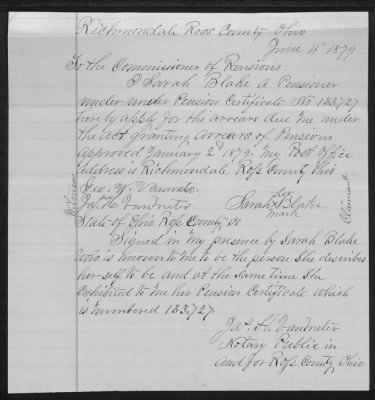 Richmondale Ross County Ohio
June 4" 1879
To the Commissioner of Pensions
I Sarah Blake A Pensioner
under under Pension Certificate No 133,727
hereby apply for the arrears due me under
the act granting arrears of Pensions
Approved January 25" 1879. My Post Office
Address is Richmondale Ross County Ohio
Geo. W. Vanmeter
Jas. H. Vanmeter
Witnesses
her
Sarah X Blake
mark
Claimant
State of Ohio Ross County SS
Signed in my presence by Sarah Blake
Who is known to me to be the person she describes
her self to be and at the same time she
exhibited to me her Pension Certificate which
is numbered 133,727.
Jas. H. Vanmeter
Notary Public in
and for Ross County, Ohio